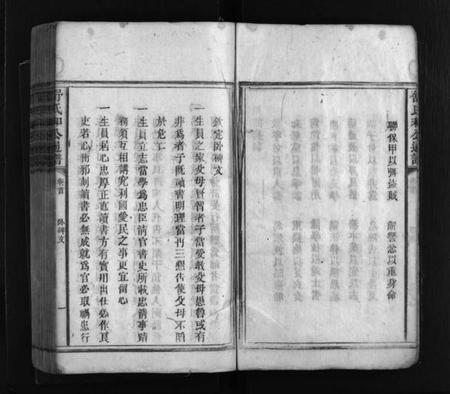 聯保甲以弭盜賊 解讐忿以重身命
欽定臥碑文
一生員之家父母賢智者子當受敎父母愚魯或有
非爲者子旣讀書明理當再三懇告使父母不陷
於危亡
一生員立志當學爲忠臣淸官書史所載忠淸事蹟
務須互相講究凡利國愛民之事更宜留心
一生員居心忠厚正直讀書方有實用出仕必作良
吏若心術邪刻讀書必無成就爲官必取禍患行
卷首 臥碑文 一